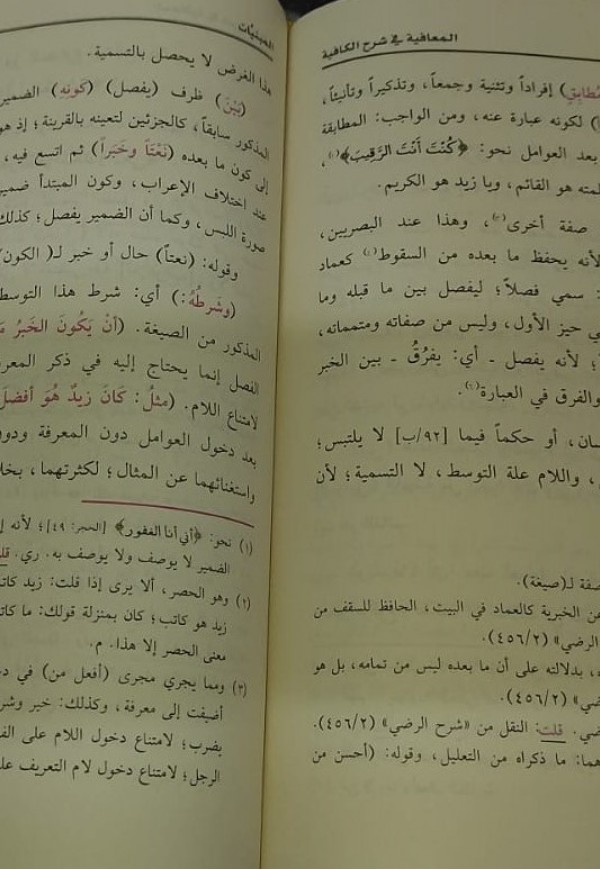 المعافية في شرح الكافية
مُطابِقٍ) إفراداً وتثنية وجمعاً، وتذكيراً وتأنيثاً،
لكونه عبارة عنه، ومن الواجب: المطابقة
بعد العوامل نحو: ﴿كُنْتَ أَنْتَ الرَّقِيبَ﴾(١)،
هو القائم، ويا زيد هو الكريم.
صفة أخرى(٢)، وهذا عند البصريين،
لأنه يحفظ ما بعده من السقوط(٤) كعماد
: سمي فصلاً؛ ليفصل بين ما قبله وما
في حيز الأول، وليس من صفاته ومتمماته،
؛ لأنه يفصل ـ أي: يفرُقُ ـ بين الخبر
والفرق في العبارة(٦).
أو حكماً فيما [٩٢/ب] لا يلتبس؛
، واللام علة التوسط، لا التسمية؛ لأن
لـ(صيغة).
الخبرية كالعماد في البيت، الحافظ للسقف من
الرضي» (٤٥٦/٢).
، بدلالته على أن ما بعده ليس من تمامه، بل هو
(٤٥٦/٢).
قلت: النقل من «شرح الرضي» (٤٥٦/٢).
ما ذكراه من التعليل، وقوله: (أحسن من
المبنيَّات
هذا الغرض لا يحصل بالتسمية.
(بَيْنَ) ظرف (يفصل) (كَونِهِ) الضمير
المذكور سابقاً، كالجزئين لتعينه بالقرينة؛ إذ هو
إلى كون ما بعده (نَعْتاً وخَبَراً) ثم اتسع فيه،
عند اختلاف الإعراب، وكون المبتدأ ضمير
صورة اللبس، وكما أن الضمير يفصل؛ كذلك
وقوله: (نعتاً) حال أو خبر لـ( الكون)
(وشَرطُهُ:) أي: شرط هذا التوسط
المذكور من الصيغة. (أنْ يَكُونَ الخَبرُ
الفصل إنما يحتاج إليه في ذكر
لامتناع اللام. (مثلُ: كَانَ زيدٌ هُوَ أفضلَ
بعد دخول العوامل دون المعرفة
واستغنائهما عن المثال؛ لكثرتهما،
(١) نحو: ﴿أني أنا الغفور﴾ [الحجر: ٤٩]؛ لأنه
الضمير لا يوصف ولا يوصف به. ري.
(٢) وهو الحصر، ألا يرى إذا قلت: زيد
زيد هو كاتب؛ كان بمنزلة قولك: ما
معنى الحصر إلا هذا. م.
(٣) ومما يجري مجرى (أفعل من) في
أضيفت إلى معرفة، وكذلك: خير
يضرب؛ لامتناع دخول اللام على
الرجل؛ لامتناع دخول لام التعريف